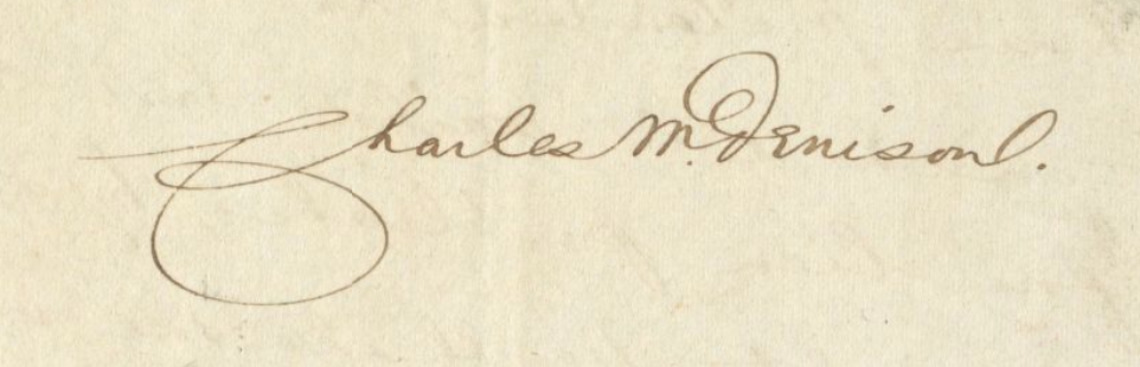 Charles M. Denison.